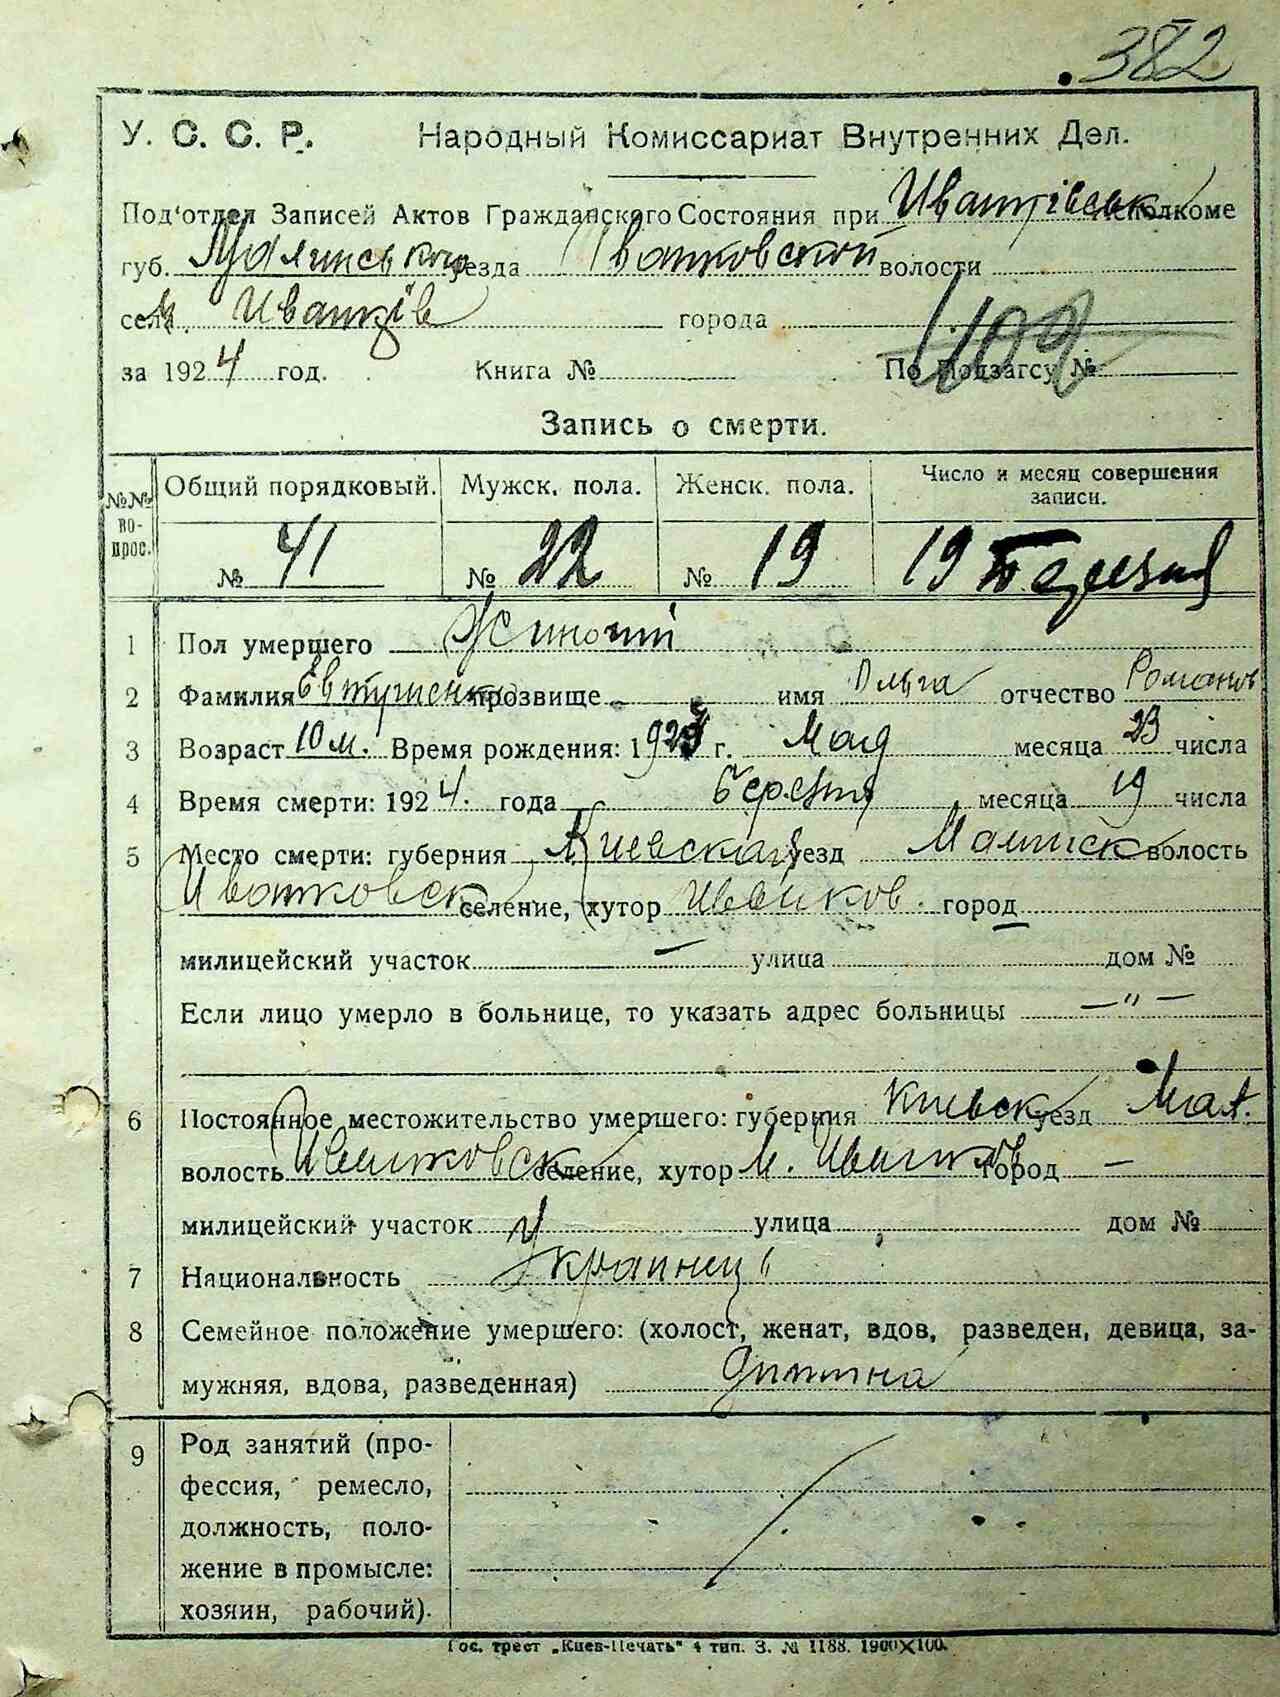 382
У. С. С. Р. Народный Комиссариат Внутренних Дел.
Под'отдел Записей Актов Гражданского Состояния при исполкоме
губ. уезда волости
села города
за 1924 год. Книга № По Подзагсу №
Запись о смерти.
№№ вопрос. Общий порядковый. Мужск. пола. Женск. пола. Число и месяц совершения записи.
№ 41 № 22 № 19 19 Березня
1 Пол умершего Жиночий
2 Фамилия Євтушенко прозвище имя Ольга отчество Романов
3 Возраст 10 м. Время рождения: 1923 г. Мая месяца 23 числа
4 Время смерти: 1924. года березня месяца 19 числа
5 Место смерти: губерния Киевская уезд волость
селение, хутор город
милицейский участок — улица дом №
Если лицо умерло в больнице, то указать адрес больницы —"—
6 Постоянное местожительство умершего: губерния Киевск уезд Мал.
волость селение, хутор м. город —
милицейский участок улица дом №
7 Национальность Украинець
8 Семейное положение умершего: (холост, женат, вдов, разведен, девица, за-
мужняя, вдова, разведенная) дитина
9 Род занятий (про-
фессия, ремесло,
должность, поло-
жение в промысле:
хозяин, рабочий).
Гос. трест „Киев-Печать" 4 тип. З. № 1188. 1900×100.